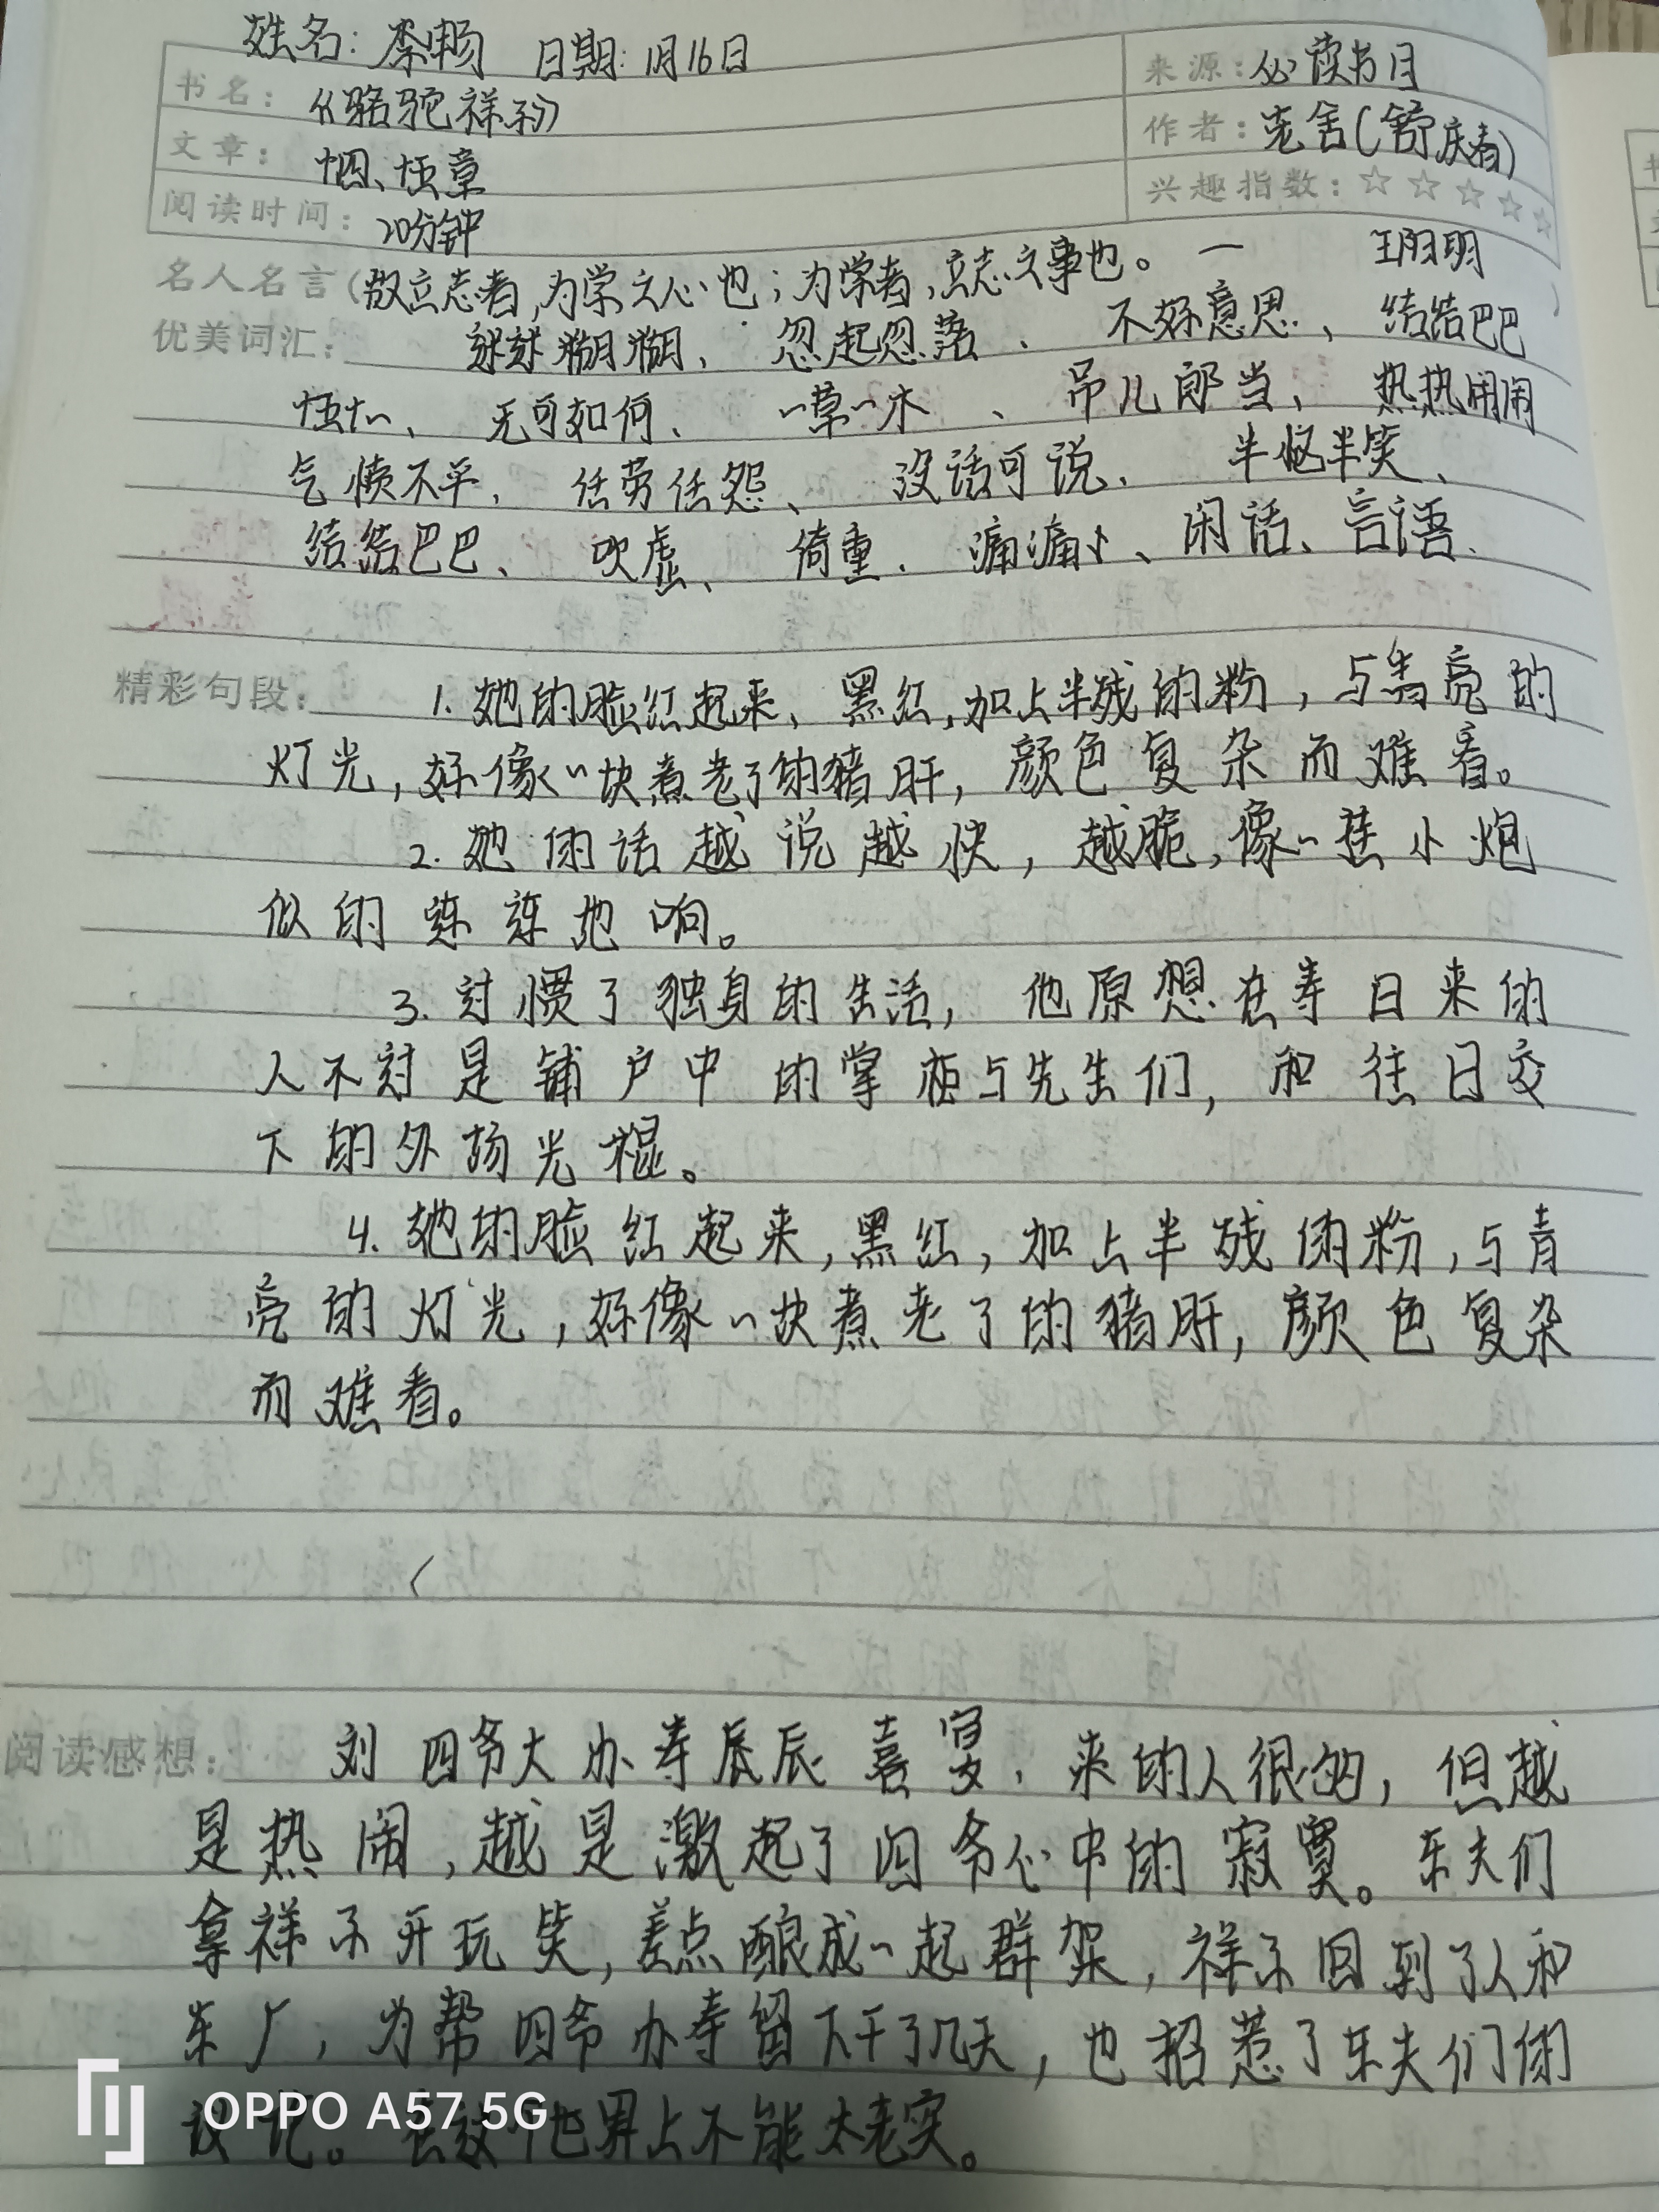 姓名：李畅 日期：1月16日
书名：《骆驼祥子》 来源：必读书目
文章：十四、十五章 作者：老舍（舒庆春）
阅读时间：20分钟 兴趣指数：☆☆☆☆☆
名人名言（故立志者，为学之心也；为学者，立志之事也。— 王阳明
优美词汇： 糊糊、忽起忽落、不好意思、结结巴巴
无可如何、一草一木、吊儿郎当、热热闹闹
气愤不平、任劳任怨、没话可说、半恼半笑、
结结巴巴、吹虚、倚重、闲话、言语、
精彩句段： 1.她的脸红起来，黑红，加上半残的粉，与青亮的
灯光，好像一块煮老了的猪肝，颜色复杂而难看。
2.她的话越说越快，越脆，像一挂小炮
似的 地响。
3.过惯了独身的生活，他原想在寿日来的
人不过是铺户中的掌柜与先生们，和往日交
下的外场光棍。
4.她的脸红起来，黑红，加上半残的粉，与青
亮的灯光，好像一块煮老了的猪肝，颜色复杂
而难看。
阅读感想： 刘四爷大办寿辰辰喜宴，来的人很的，但越
是热闹，越是激起了四爷心中的寂寞。车夫们
拿祥子开玩笑，差点酿成一起群架，祥子回到了人和
车厂，为帮四爷办寿留下干了几天，也招惹了车夫们的
议论。在这个世界上不能太老实。
OPPO A57 5G